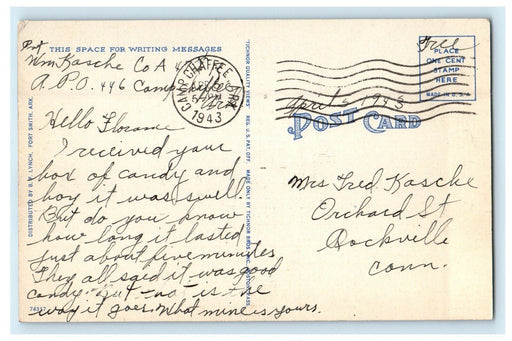 Pvt
THIS SPACE FOR WRITING MESSAGES
Wm Kasche Co A
A.P.O. 446 Camp Chaffee
Ark
Hello Florance
I received your
box of candy and
boy it was swell.
But do you know
how long it lasted
just about five minutes
They all said it was good
candy. but "no" is the
way it goes. What mine is yours.
DISTRIBUTED BY B. W. LYNCH, FORT SMITH, ARK.
"TICHNOR QUALITY VIEWS," REG. U. S. PAT. OFF. MADE ONLY BY TICHNOR BROS., INC.
CAMP CHAFFEE ARK
1943
Free
PLACE
ONE CENT
STAMP
HERE
MADE IN U.S.A.
April 5 1943
POST CARD
Mrs Fred Kasche
Orchard St
Rockville
Conn.